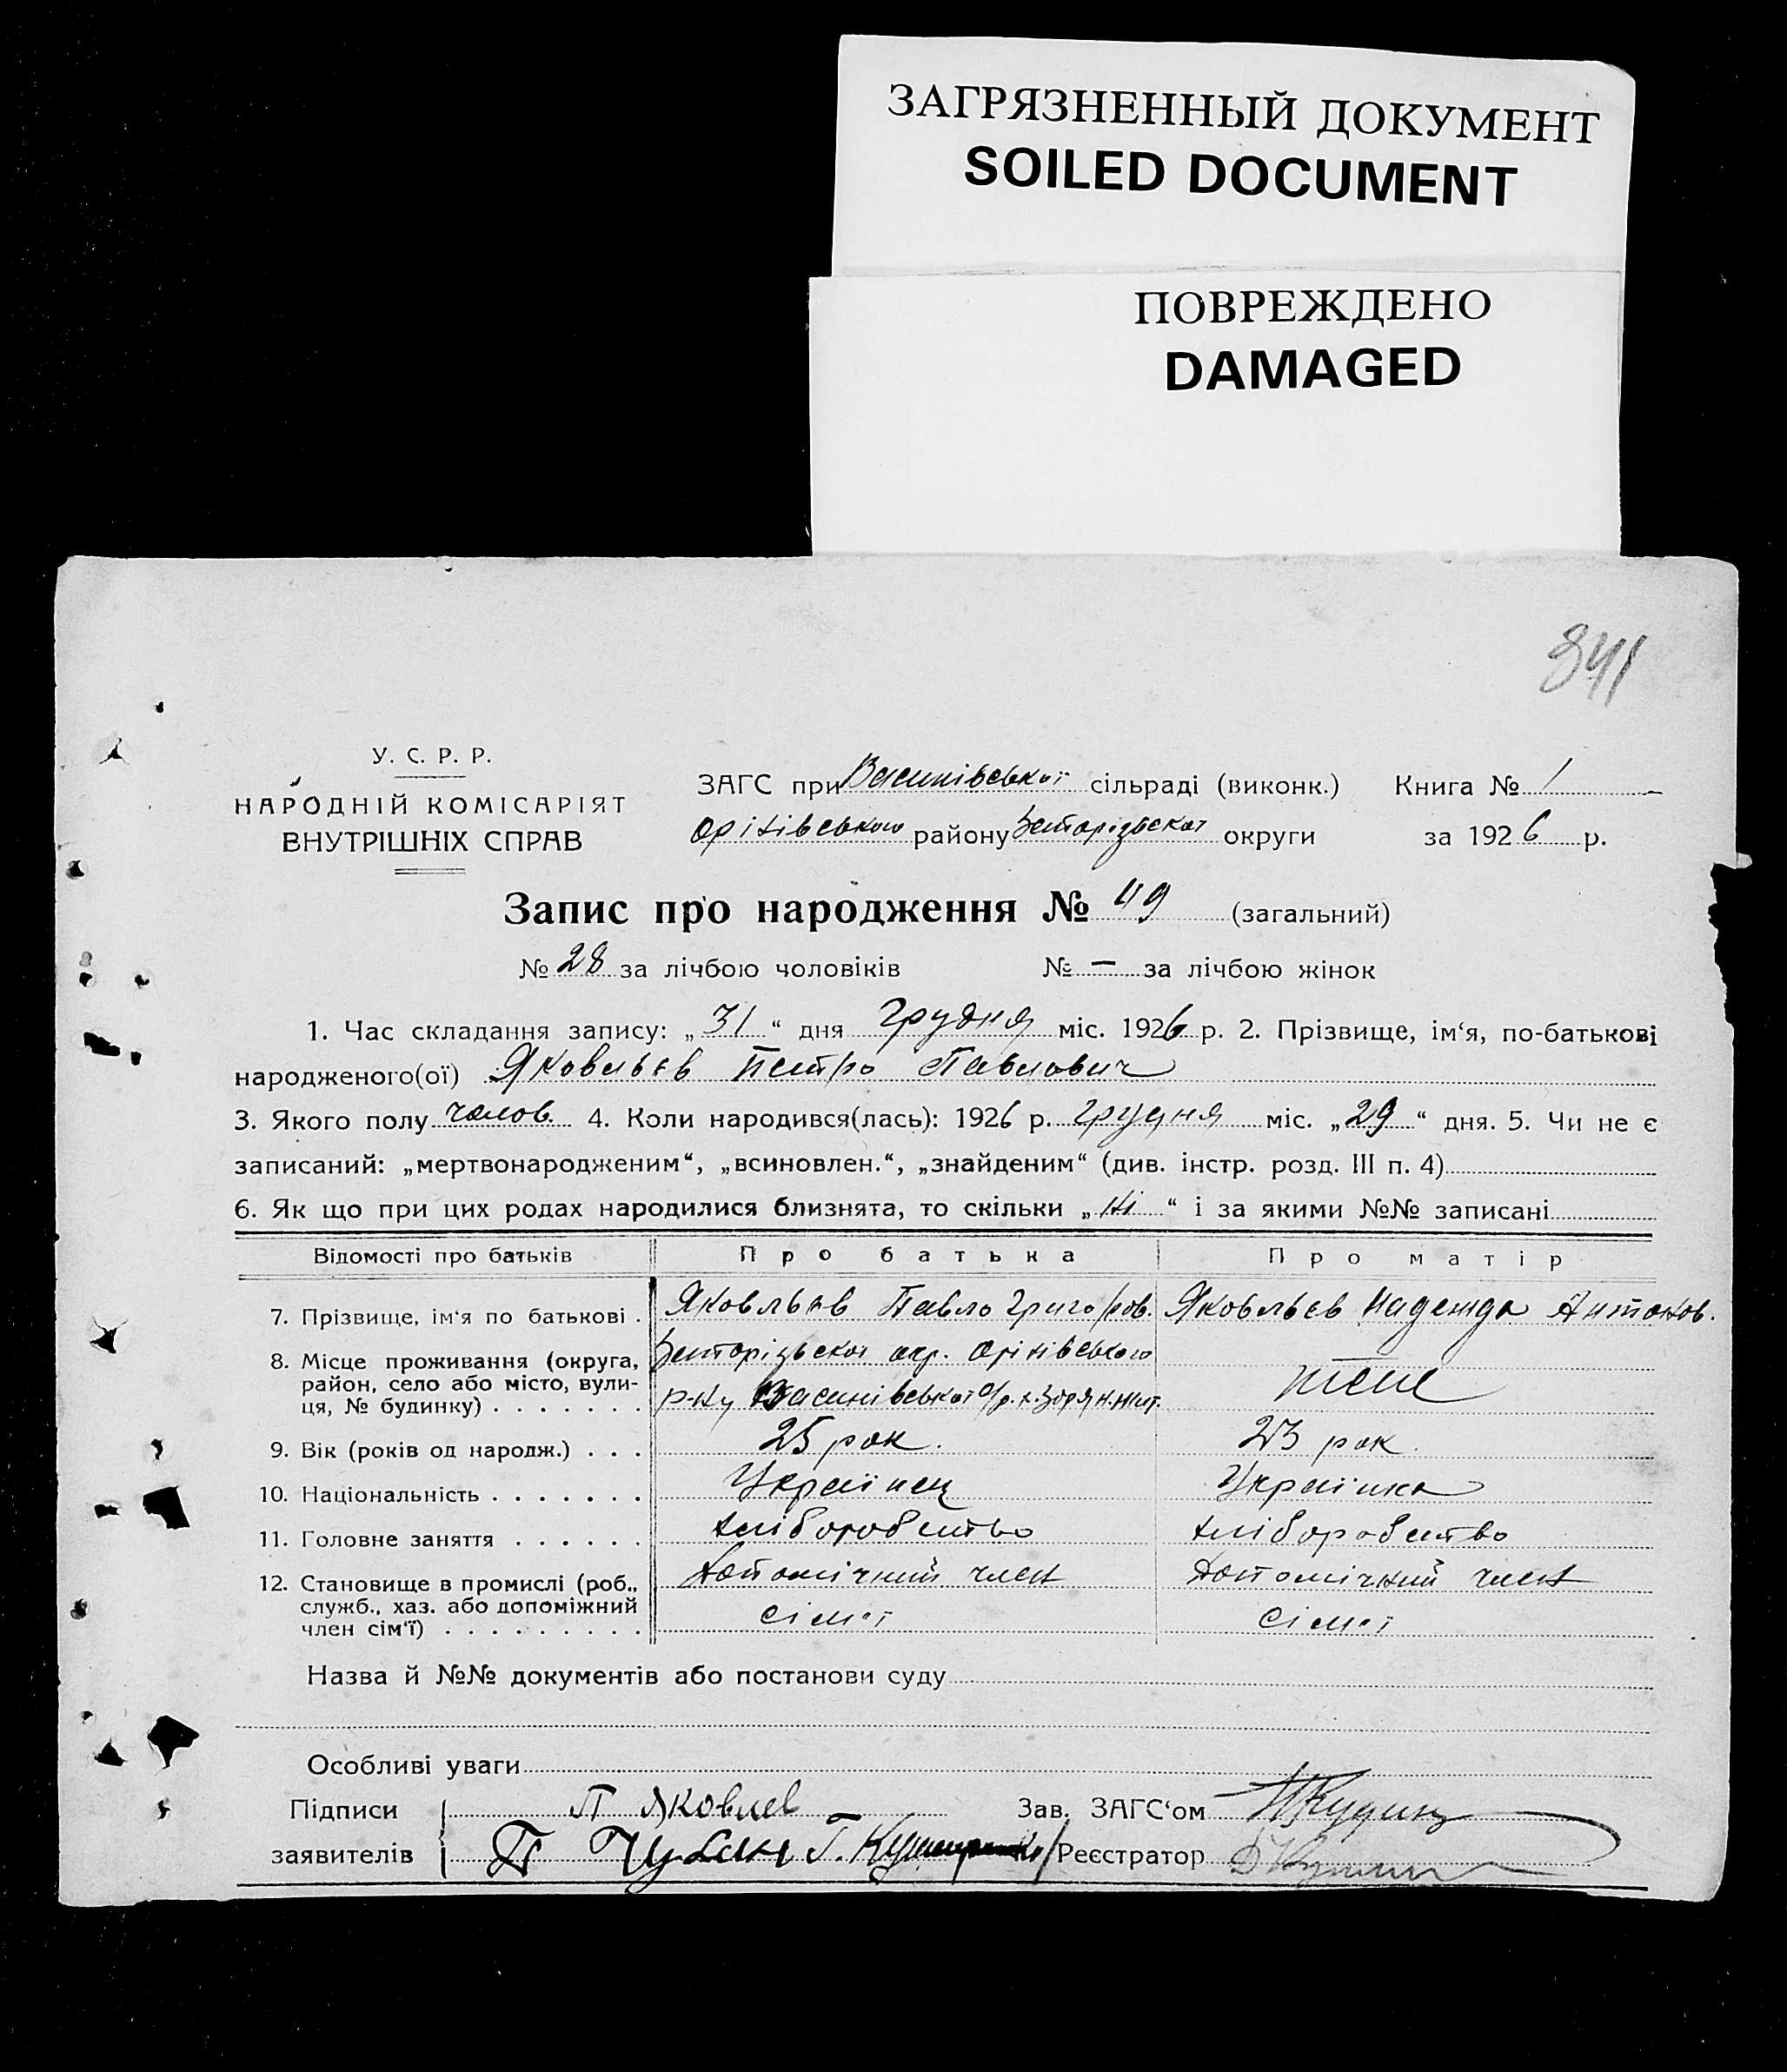 ЗАГРЯЗНЕННЫЙ ДОКУМЕНТ
SOILED DOCUMENT
ПОВРЕЖДЕНО
DAMAGED
341
У. С. Р. Р.
НАРОДНІЙ КОМІСАРІЯТ
ВНУТРІШНІХ СПРАВ
ЗАГС при Василівської сільраді (виконк.) Книга № 1
Оріхівського району Запорізьскої округи за 1926 р.
Запис про народження № 49 (загальний)
№ 28 за лічбою чоловіків № — за лічбою жінок
1. Час складання запису: „31“ дня грудня міс. 1926 р. 2. Прізвище, ім‘я, по-батькові
народженого(ої) Яковльєв Петро Павлович
3. Якого полу чолов. 4. Коли народився(лась): 1926 р. грудня міс. „29“ дня. 5. Чи не є
записаний: „мертвонародженим“, „всиновлен.“, „знайденим“ (див. інстр. розд. III п. 4)
6. Як що при цих родах народилися близнята, то скільки „Ні“ і за якими №№ записані
Відомості про батьків Про батька Про матір
7. Прізвище, ім‘я по батькові . Яковльєв Павло Григоров. Яковльєв Надежда Антонов.
8. Місце проживання (округа, Запорізьскої окр. Оріхівського
район, село або місто, вули- р-ну Василівської с/р. х. Зоря теж
ця, № будинку) . . . . . . .
9. Вік (років од народж.) . . . 25 рок. 23 рок.
10. Національність . . . . . . . Українец Українка
11. Головне заняття . . . . . . хліборобство хліборобство
12. Становище в промислі (роб., Допомічний член Допомічний член
служб., хаз. або допоміжний сімї сімї
член сім‘ї) . . . . . . . . .
Назва й №№ документів або постанови суду
Особливі уваги
Підписи П Яковлев Зав. ЗАГС‘ом
заявителів П Чубан Реєстратор